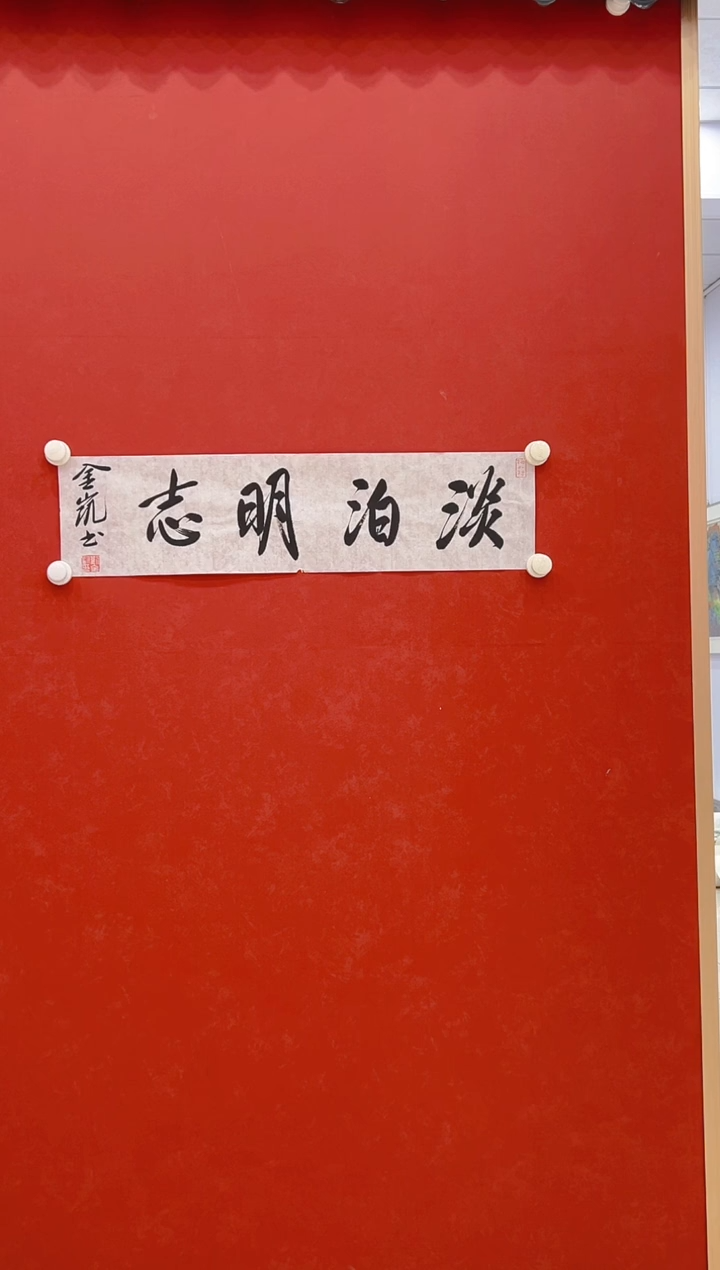 淡泊明志
金岚书